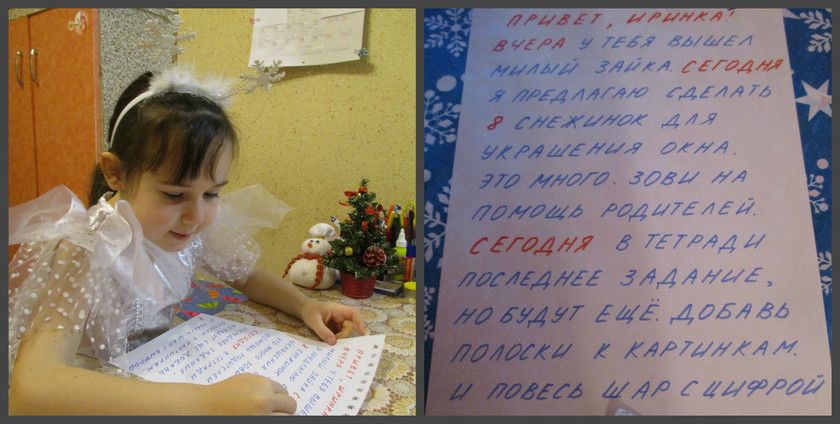 ПРИВЕТ, ИРИНКА!
ВЧЕРА У ТЕБЯ ВЫШЕЛ
МИЛЫЙ ЗАЙКА. СЕГОДНЯ
Я ПРЕДЛАГАЮ СДЕЛАТЬ
8 СНЕЖИНОК ДЛЯ
УКРАШЕНИЯ ОКНА.
ЭТО МНОГО. ЗОВИ НА
ПОМОЩЬ РОДИТЕЛЕЙ.
СЕГОДНЯ В ТЕТРАДИ
ПОСЛЕДНЕЕ ЗАДАНИЕ,
НО БУДУТ ЕЩЁ. ДОБАВЬ
ПОЛОСКИ К КАРТИНКАМ.
И ПОВЕСЬ ШАР С ЦИФРОЙ